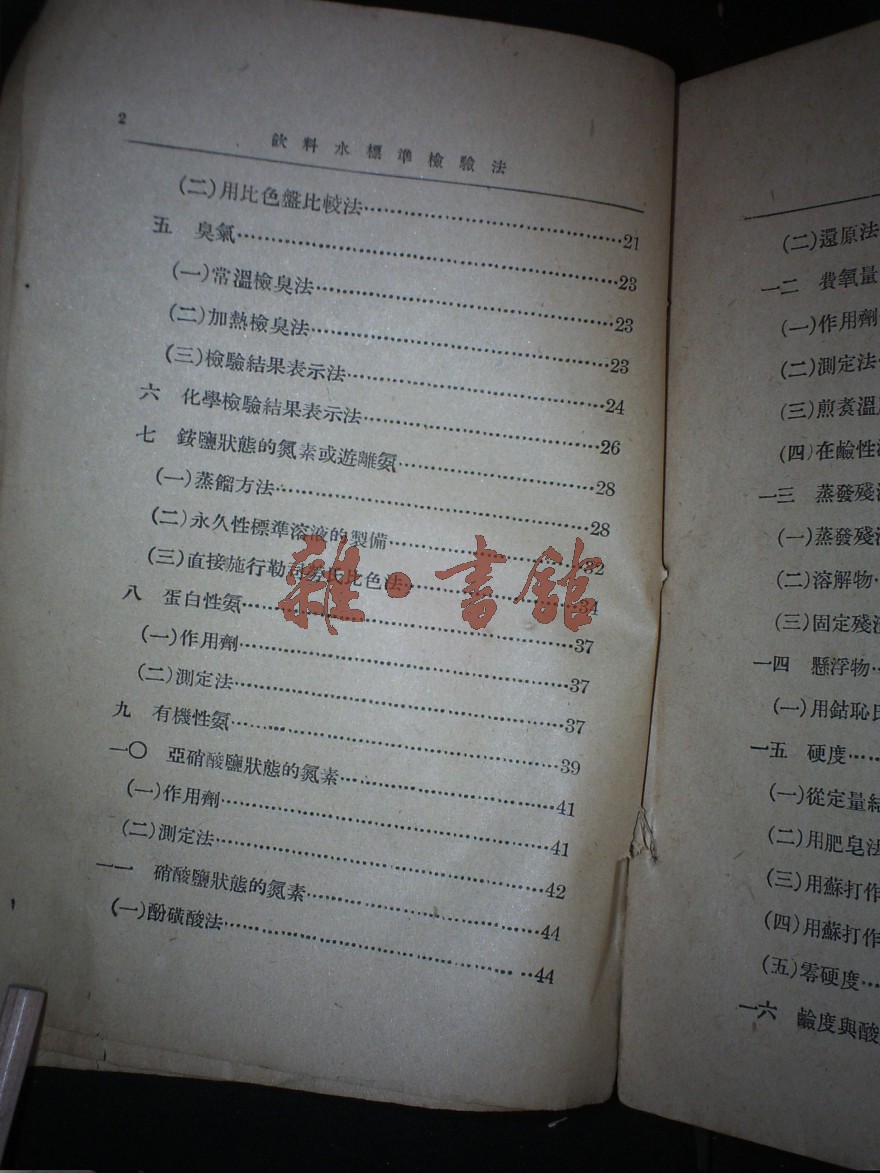 2
飲料水標準檢驗法
(二)用比色盤比較法……21
五 臭氣……23
(一)常溫檢臭法……23
(二)加熱檢臭法……23
(三)檢驗結果表示法……24
六 化學檢驗結果表示法……26
七 銨鹽狀態的氮素或遊離氨……28
(一)蒸餾方法……28
(二)永久性標準溶液的製備……32
(三)直接施行勒司勞氏比色法……34
八 蛋白性氨……37
(一)作用劑……37
(二)測定法……37
九 有機性氨……39
一〇 亞硝酸鹽狀態的氮素……41
(一)作用劑……41
(二)測定法……42
一一 硝酸鹽狀態的氮素……44
(一)酚磺酸法……44
雜·書館
(二)還原法
一二 費氧量
(一)作用劑
(二)測定法
(三)煎煑溫
(四)在鹼性
一三 蒸發殘
(一)蒸發殘
(二)溶解物
(三)固定殘
一四 懸浮物
(一)用鈷恥氏
一五 硬度……
(一)從定量結
(二)用肥皂法
(三)用蘇打作
(四)用蘇打作
(五)零硬度……
一六 鹼度與酸